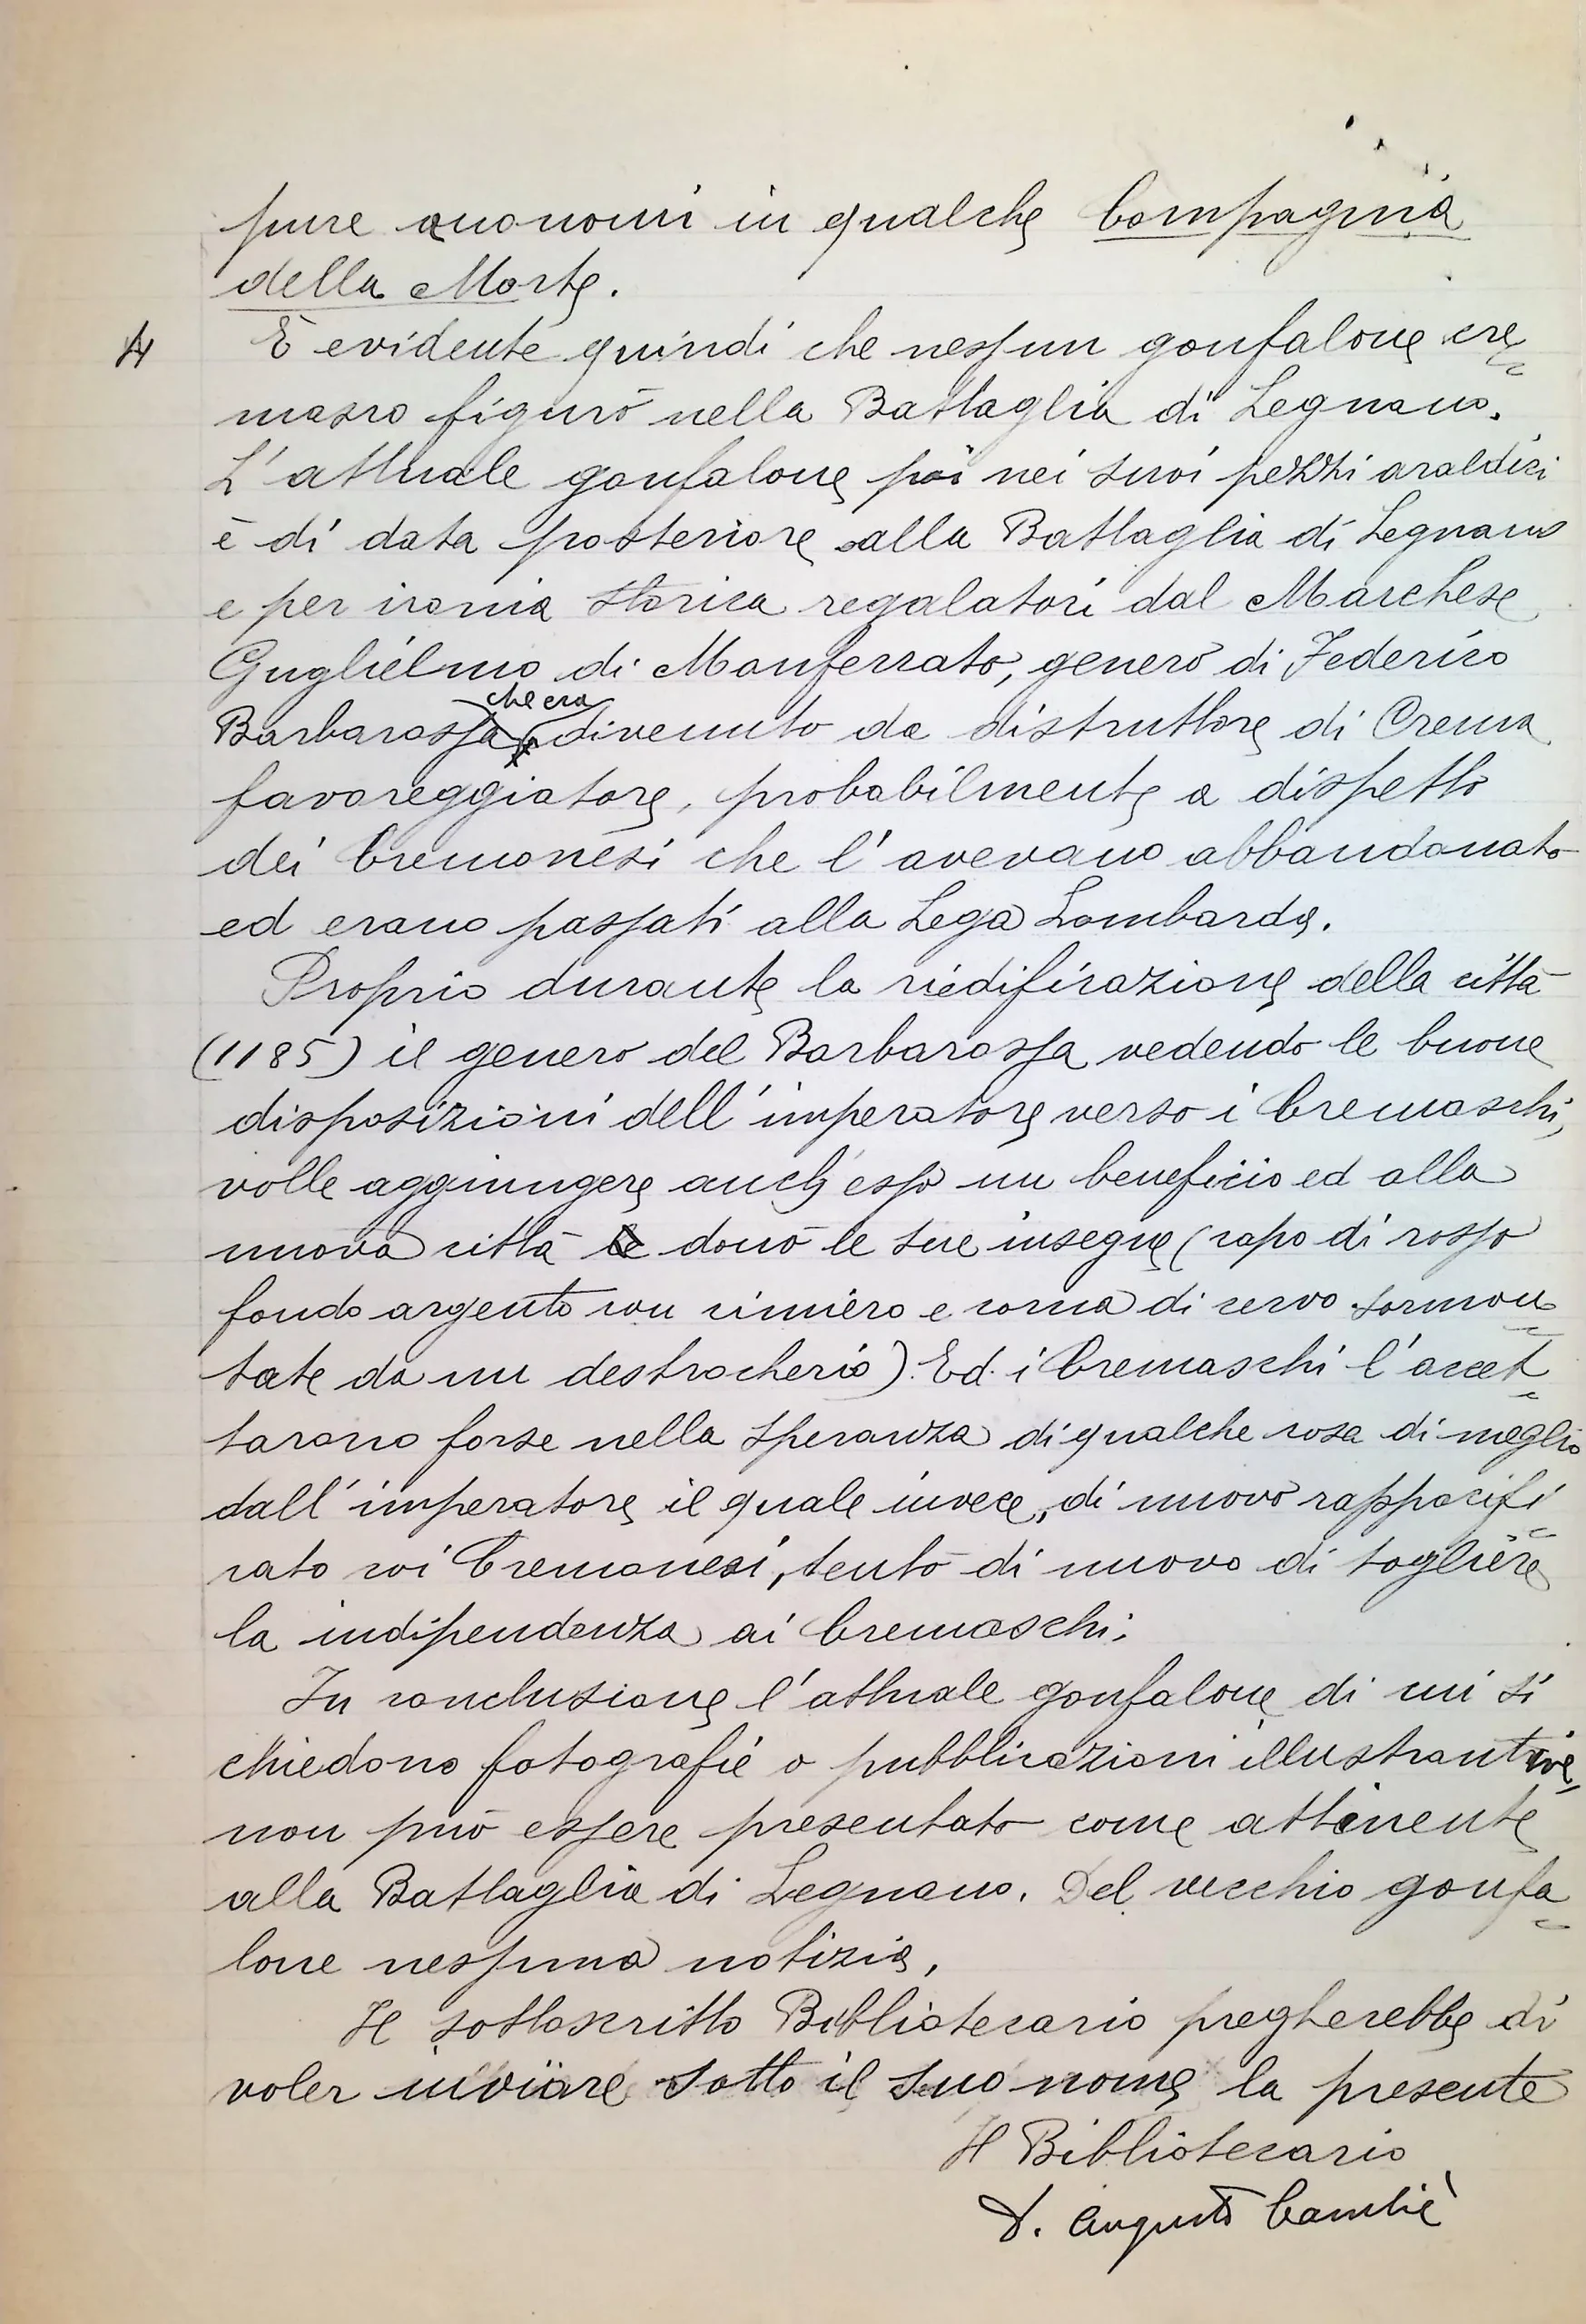 pure anonomi in qualche Compagnia
della Morte.
È evidente quindi che nessun gonfalone cre
masco figurò nella Battaglia di Legnano.
L'attuale gonfalone poi nei suoi pezzi araldici
è di data posteriore alla Battaglia di Legnano
e per ironia storica regalatoci dal Marchese
Guglielmo di Monferrato, genero di Federico
che era
Barbarossa divenuto da distruttore di Crema
favoreggiatore, probabilmente a dispetto
dei Cremonesi che l'avevano abbandonato
ed erano passati alla Lega Lombarda.
Proprio durante la riedificazione della città
(1185) il genero del Barbarossa vedendo le buone
disposizioni dell'imperatore verso i Cremaschi,
volle aggiungere anch'esso un beneficio ed alla
nuova città donò le sue insegne (capo di rosso
fondo argento con cimiero e corna di cervo sormon
tate da un destrocherio). Ed i Cremaschi l'accet
tarono forse nella speranza di qualche cosa di meglio
dall'imperatore il quale invece, di nuovo rappacifi
cato coi Cremonesi, tentò di nuovo di togliere
la indipendenza ai Cremaschi.
In conclusione l'attuale gonfalone di cui si
chiedono fotografie o pubblicazioni illustrantive,
non può essere presentato come attinente
alla Battaglia di Legnano. Del vecchio gonfa
lone nessuna notizia.
Il sottoscritto Bibliotecario pregherebbe di
voler inviare sotto il suo nome la presente
Il Bibliotecario
D. Augusto Cambiè